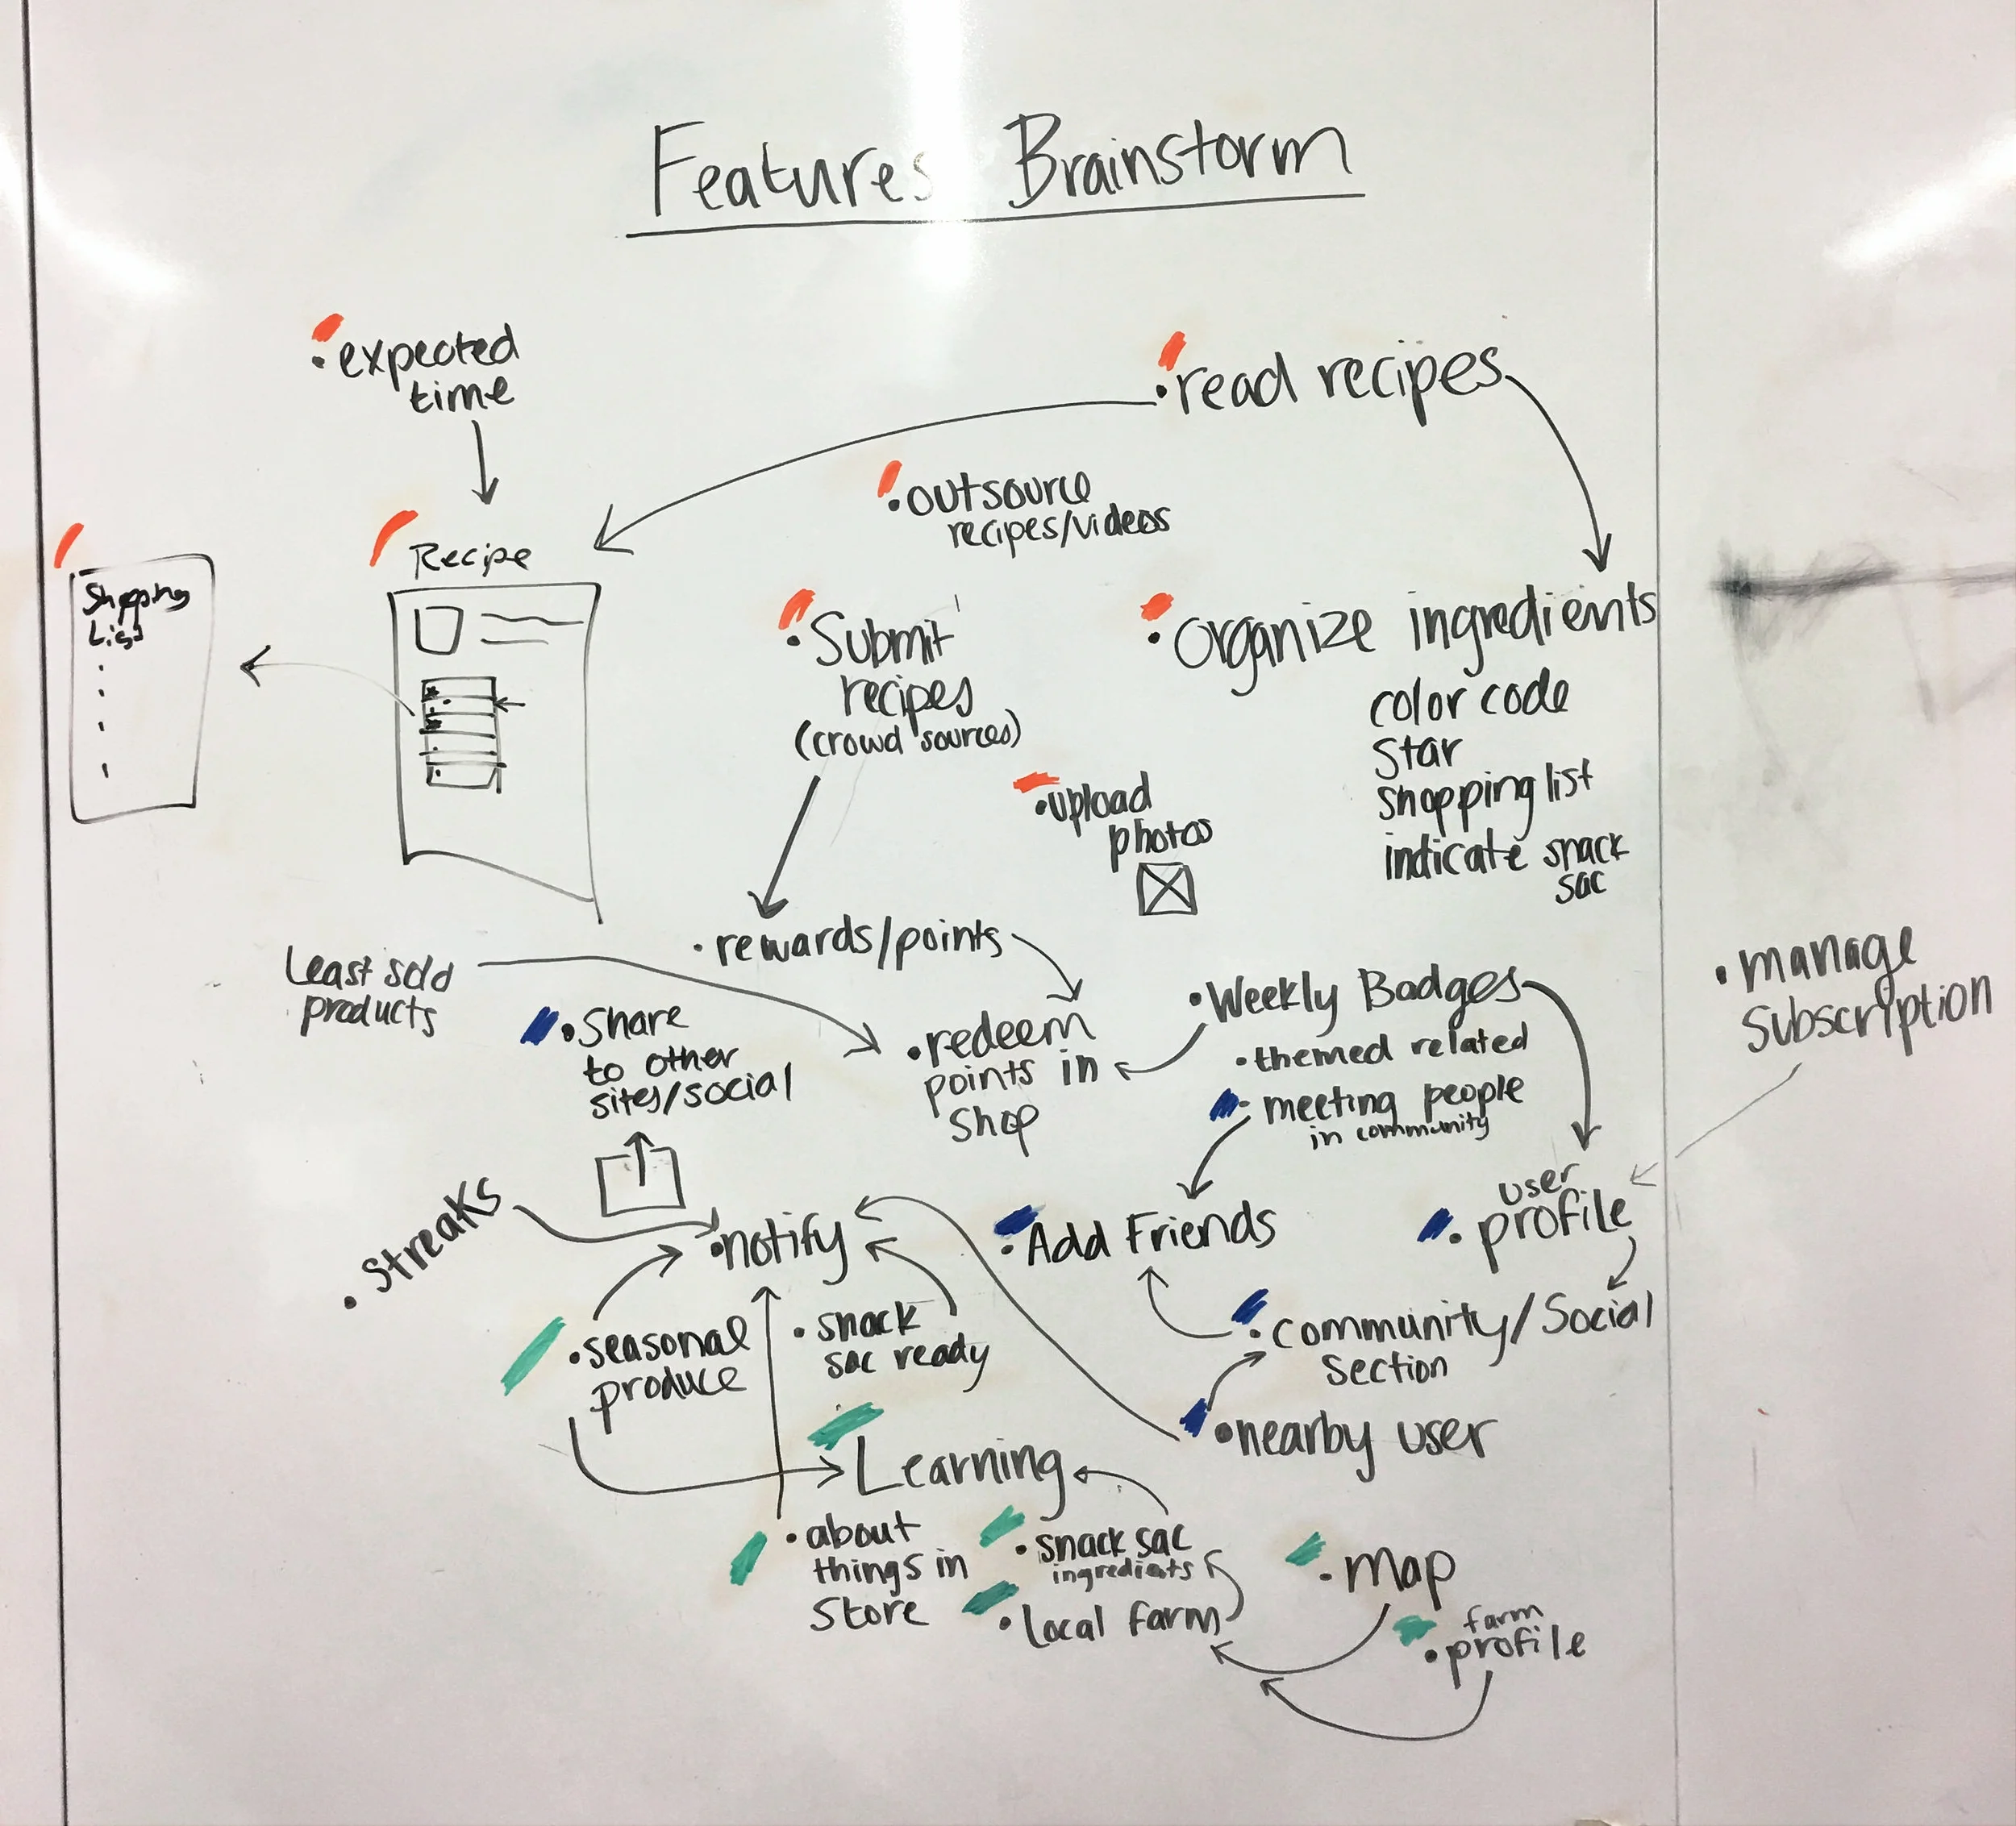 Features Brainstorm
• expected
time
• read recipes
• outsource
recipes/videos
Recipe
Shopping
List
• Submit
recipes
(crowd sources)
• Organize ingredients
color code
star
shopping list
indicate snack
sac
• upload
photos
• rewards/points
Least sold
products
• Share
to other
sites/social
• redeem
points in
shop
• Weekly Badges
• themed related
• meeting people
in community
• manage
subscription
• streaks
• notify
• Add Friends
user
• profile
• seasonal
produce
• snack
sac ready
• community/Social
section
• nearby user
Learning
• about
things in
store
• snack sac
ingredients
• local farm
• map
farm
• profile